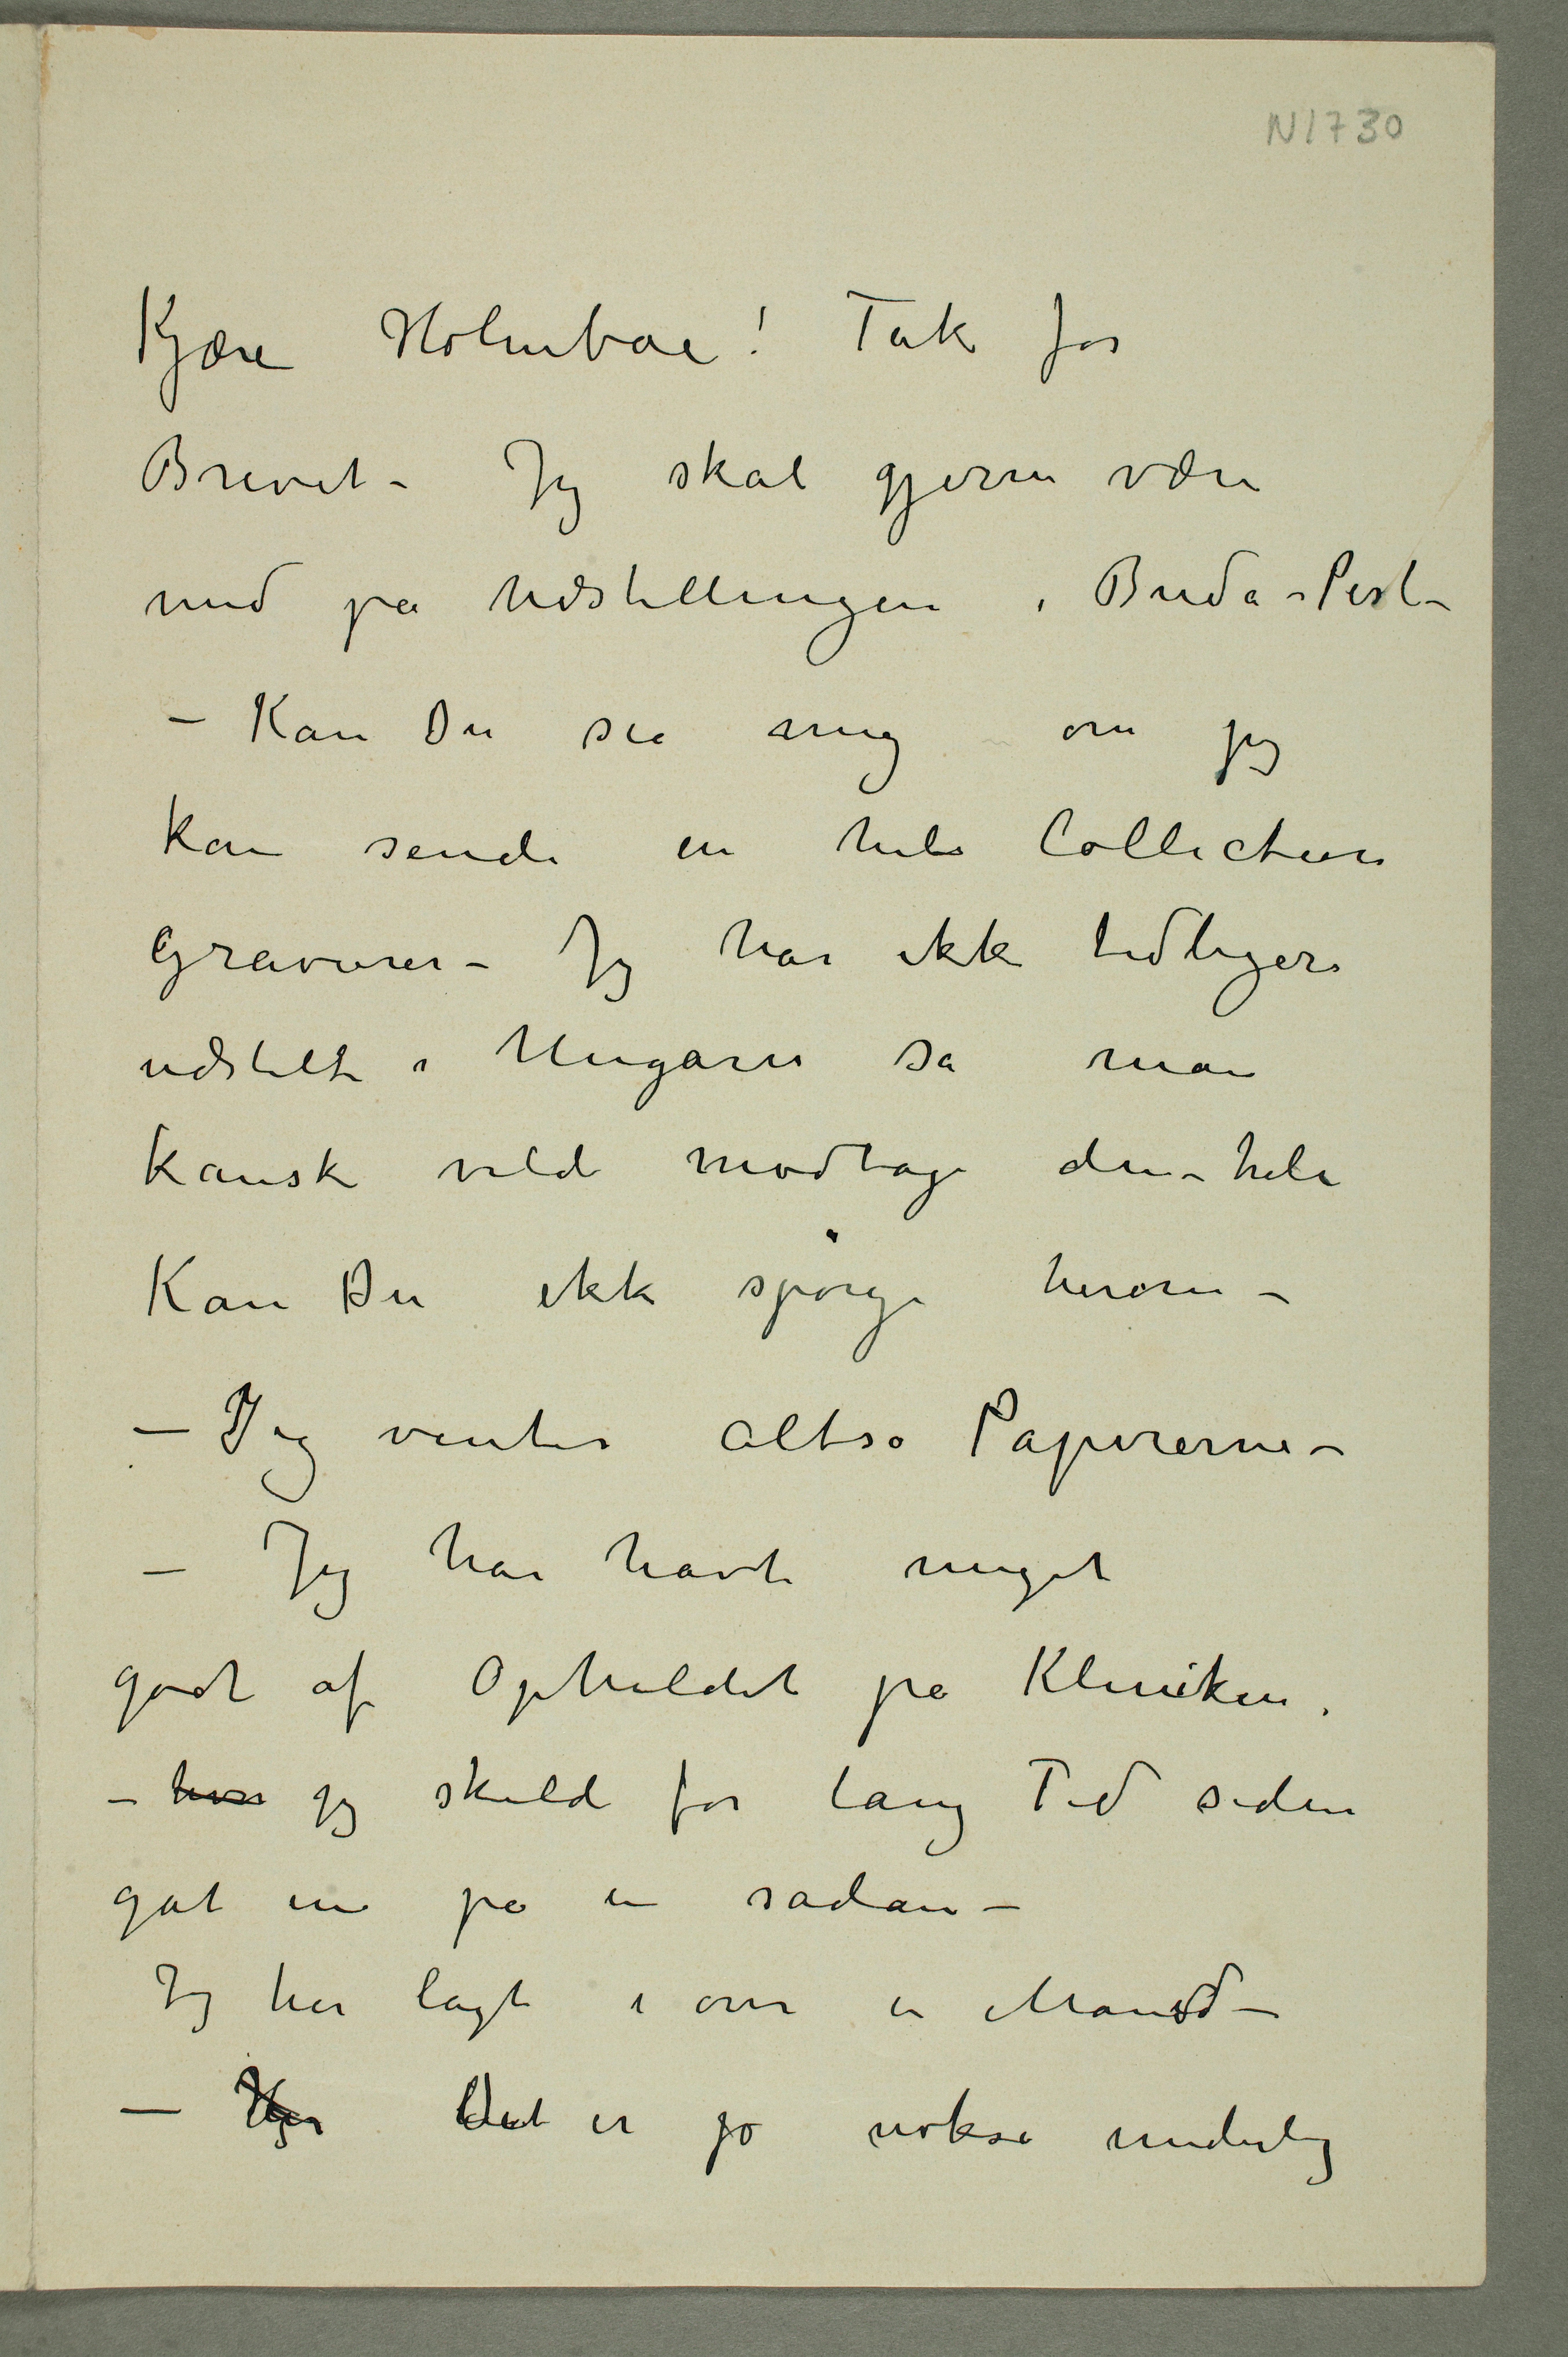 N1730
Kjære Holmboe! Tak for
Brevet – Jeg skal gjerne være
med på Udstillingen i Buda-Pest –
– Kan Du sie mig om jeg
kan sende en hele Collection
Gravurer – Jeg har ikke tidligere
udstillt i Ungarn så man
kanske vilde modtage den – hele
Kan Du ikke spörge herom –
– Jeg venter altså Papirerne –
– Jeg har havt meget
godt af Opholdet på Kliniken,
– hvor jeg skulde for lang Tid siden
gåt ind på en sådan –
Jeg har lagt i over en Måned –
– Det er jo nokså underlig